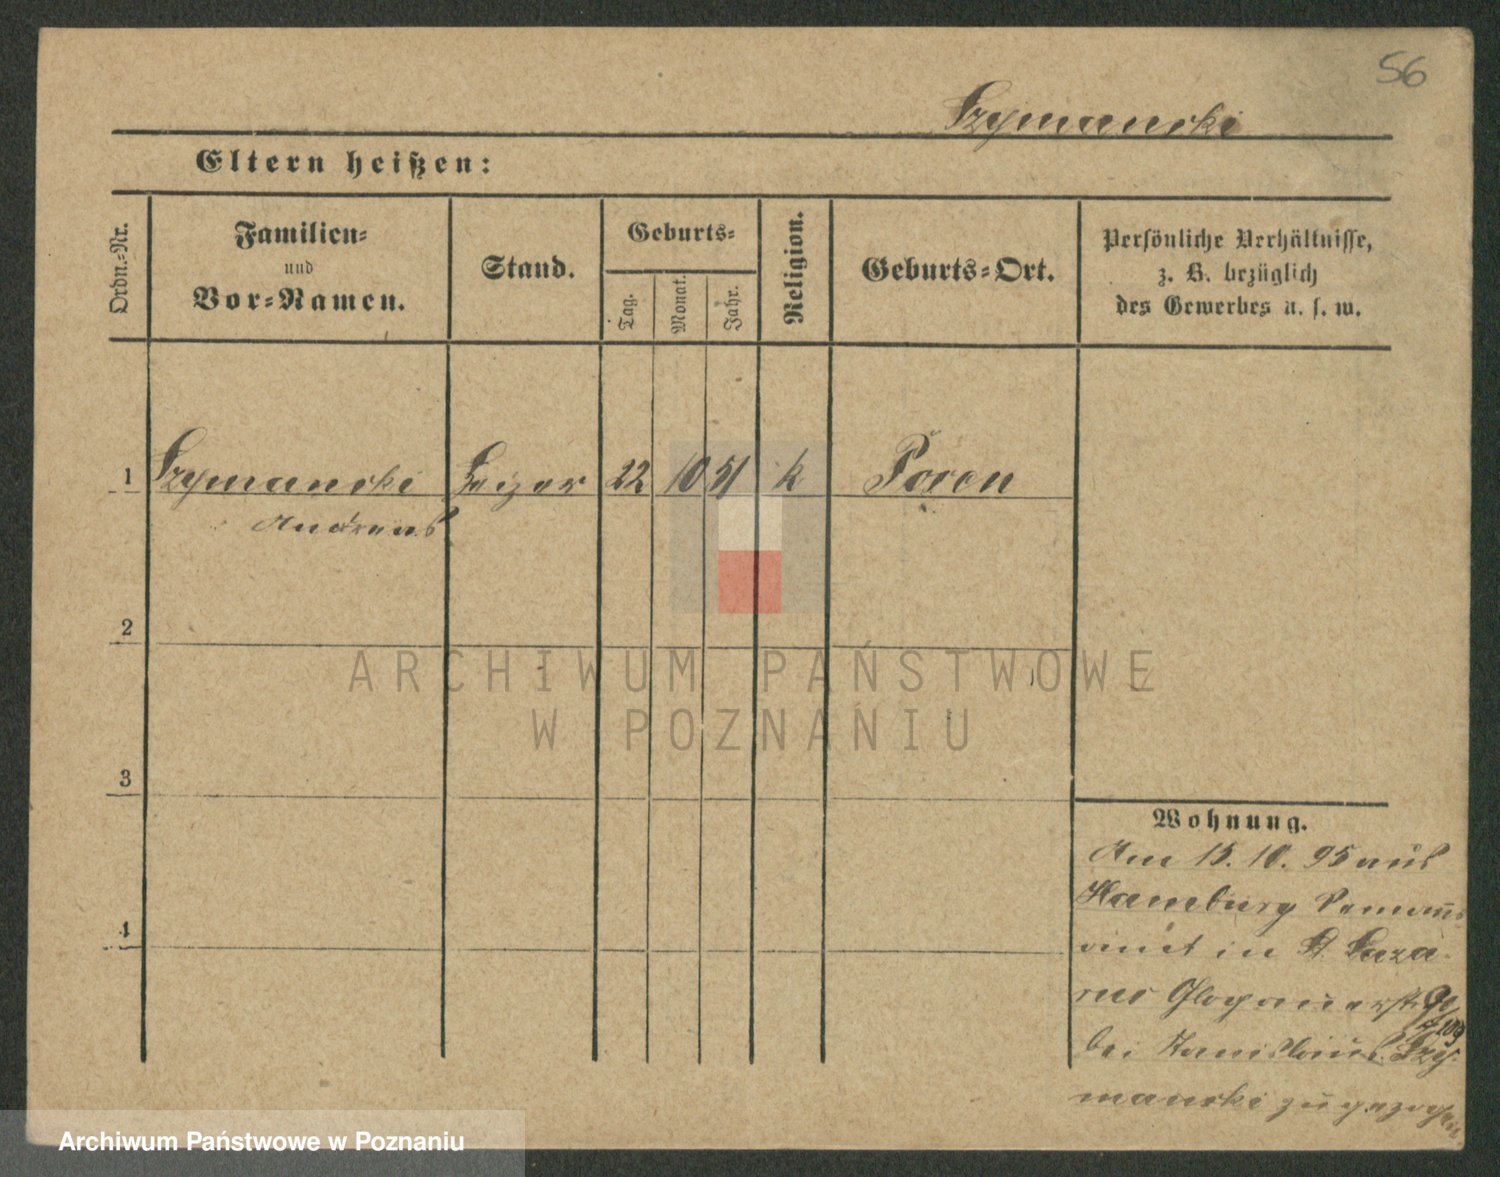 56
Szymanski
Eltern heißen:
Ordn.-Nr.
Familien-
und
Vor-Namen.
Stand.
Geburts-
Tag.
Monat.
Jahr.
Religion.
Geburts-Ort.
Persönliche Verhältnisse,
z. B. bezüglich
des Gewerbes u. s. w.
1 Szymanski Heizer 22 10 51 k Posen
Andreas
2
ARCHIWUM PAŃSTWOWE
W POZNANIU
3
Wohnung.
Am 15. 10. 95 aus
Hamburg
in St. Laza-
rus Glogauerstr.
bei Stanislaus Szy-
manski zugezogen
4
Archiwum Państwowe w Poznaniu